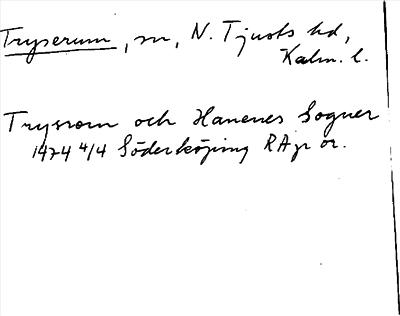 Tryserum, sn, N. Tjusts hd,
Kalm. l.
Trysrom och Hanenes Sogner
1474 4/4 Söderköping RAp or.